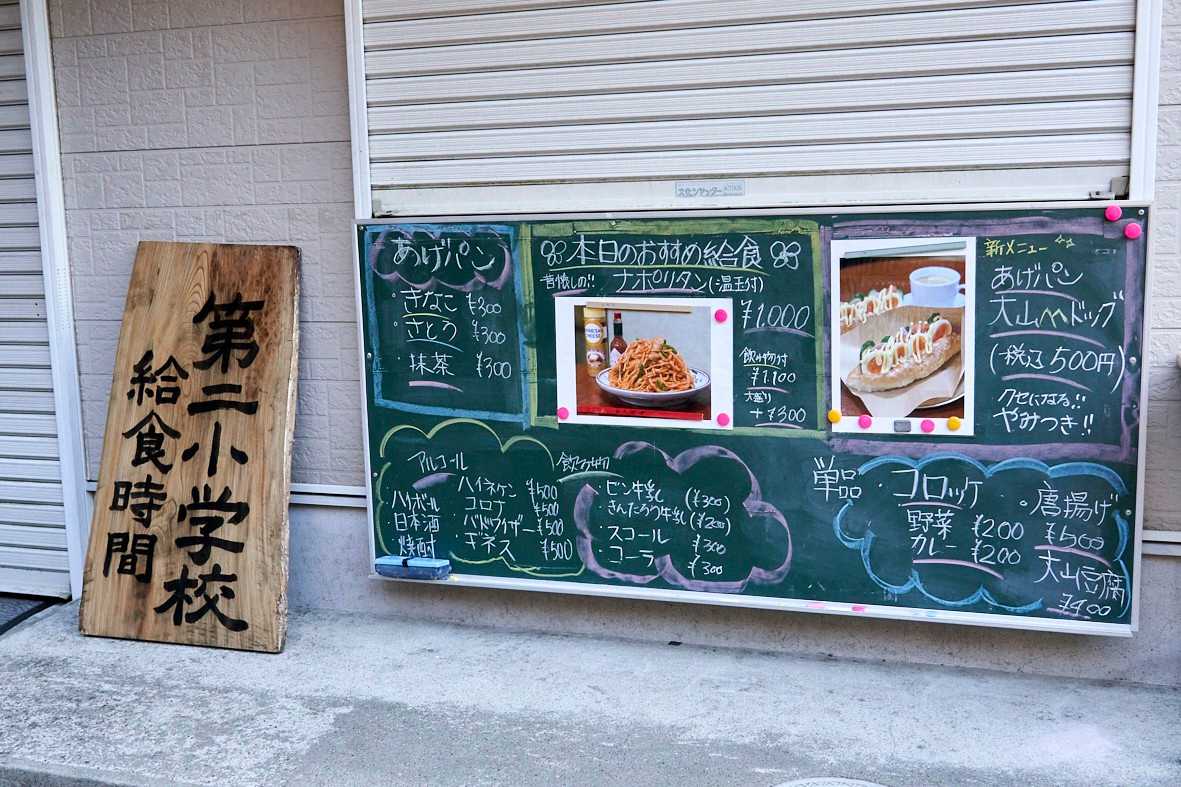 第二小学校
給食時間
あげパン
・きなこ ¥300
・さとう ¥300
・抹茶 ¥300
本日のおすすめ給食
昔懐しの!! ナポリタン(温玉付)
¥1,000
飲み物付
¥1,100
大盛り
+¥300
新メニュー
あげパン
大山ドッグ
(税込500円)
クセになる!!
やみつき!!
アルコール
ハイボール
日本酒
焼酎
ハイネケン ¥500
コロナ ¥500
バドワイザー ¥500
ギネス ¥500
飲み物
・ビン牛乳 (¥300)
・さんたろう牛乳 (¥200)
・スコール ¥300
・コーラ ¥300
単品
・コロッケ
野菜 ¥200
カレー ¥200
・唐揚げ
¥500
大山豆腐
¥400